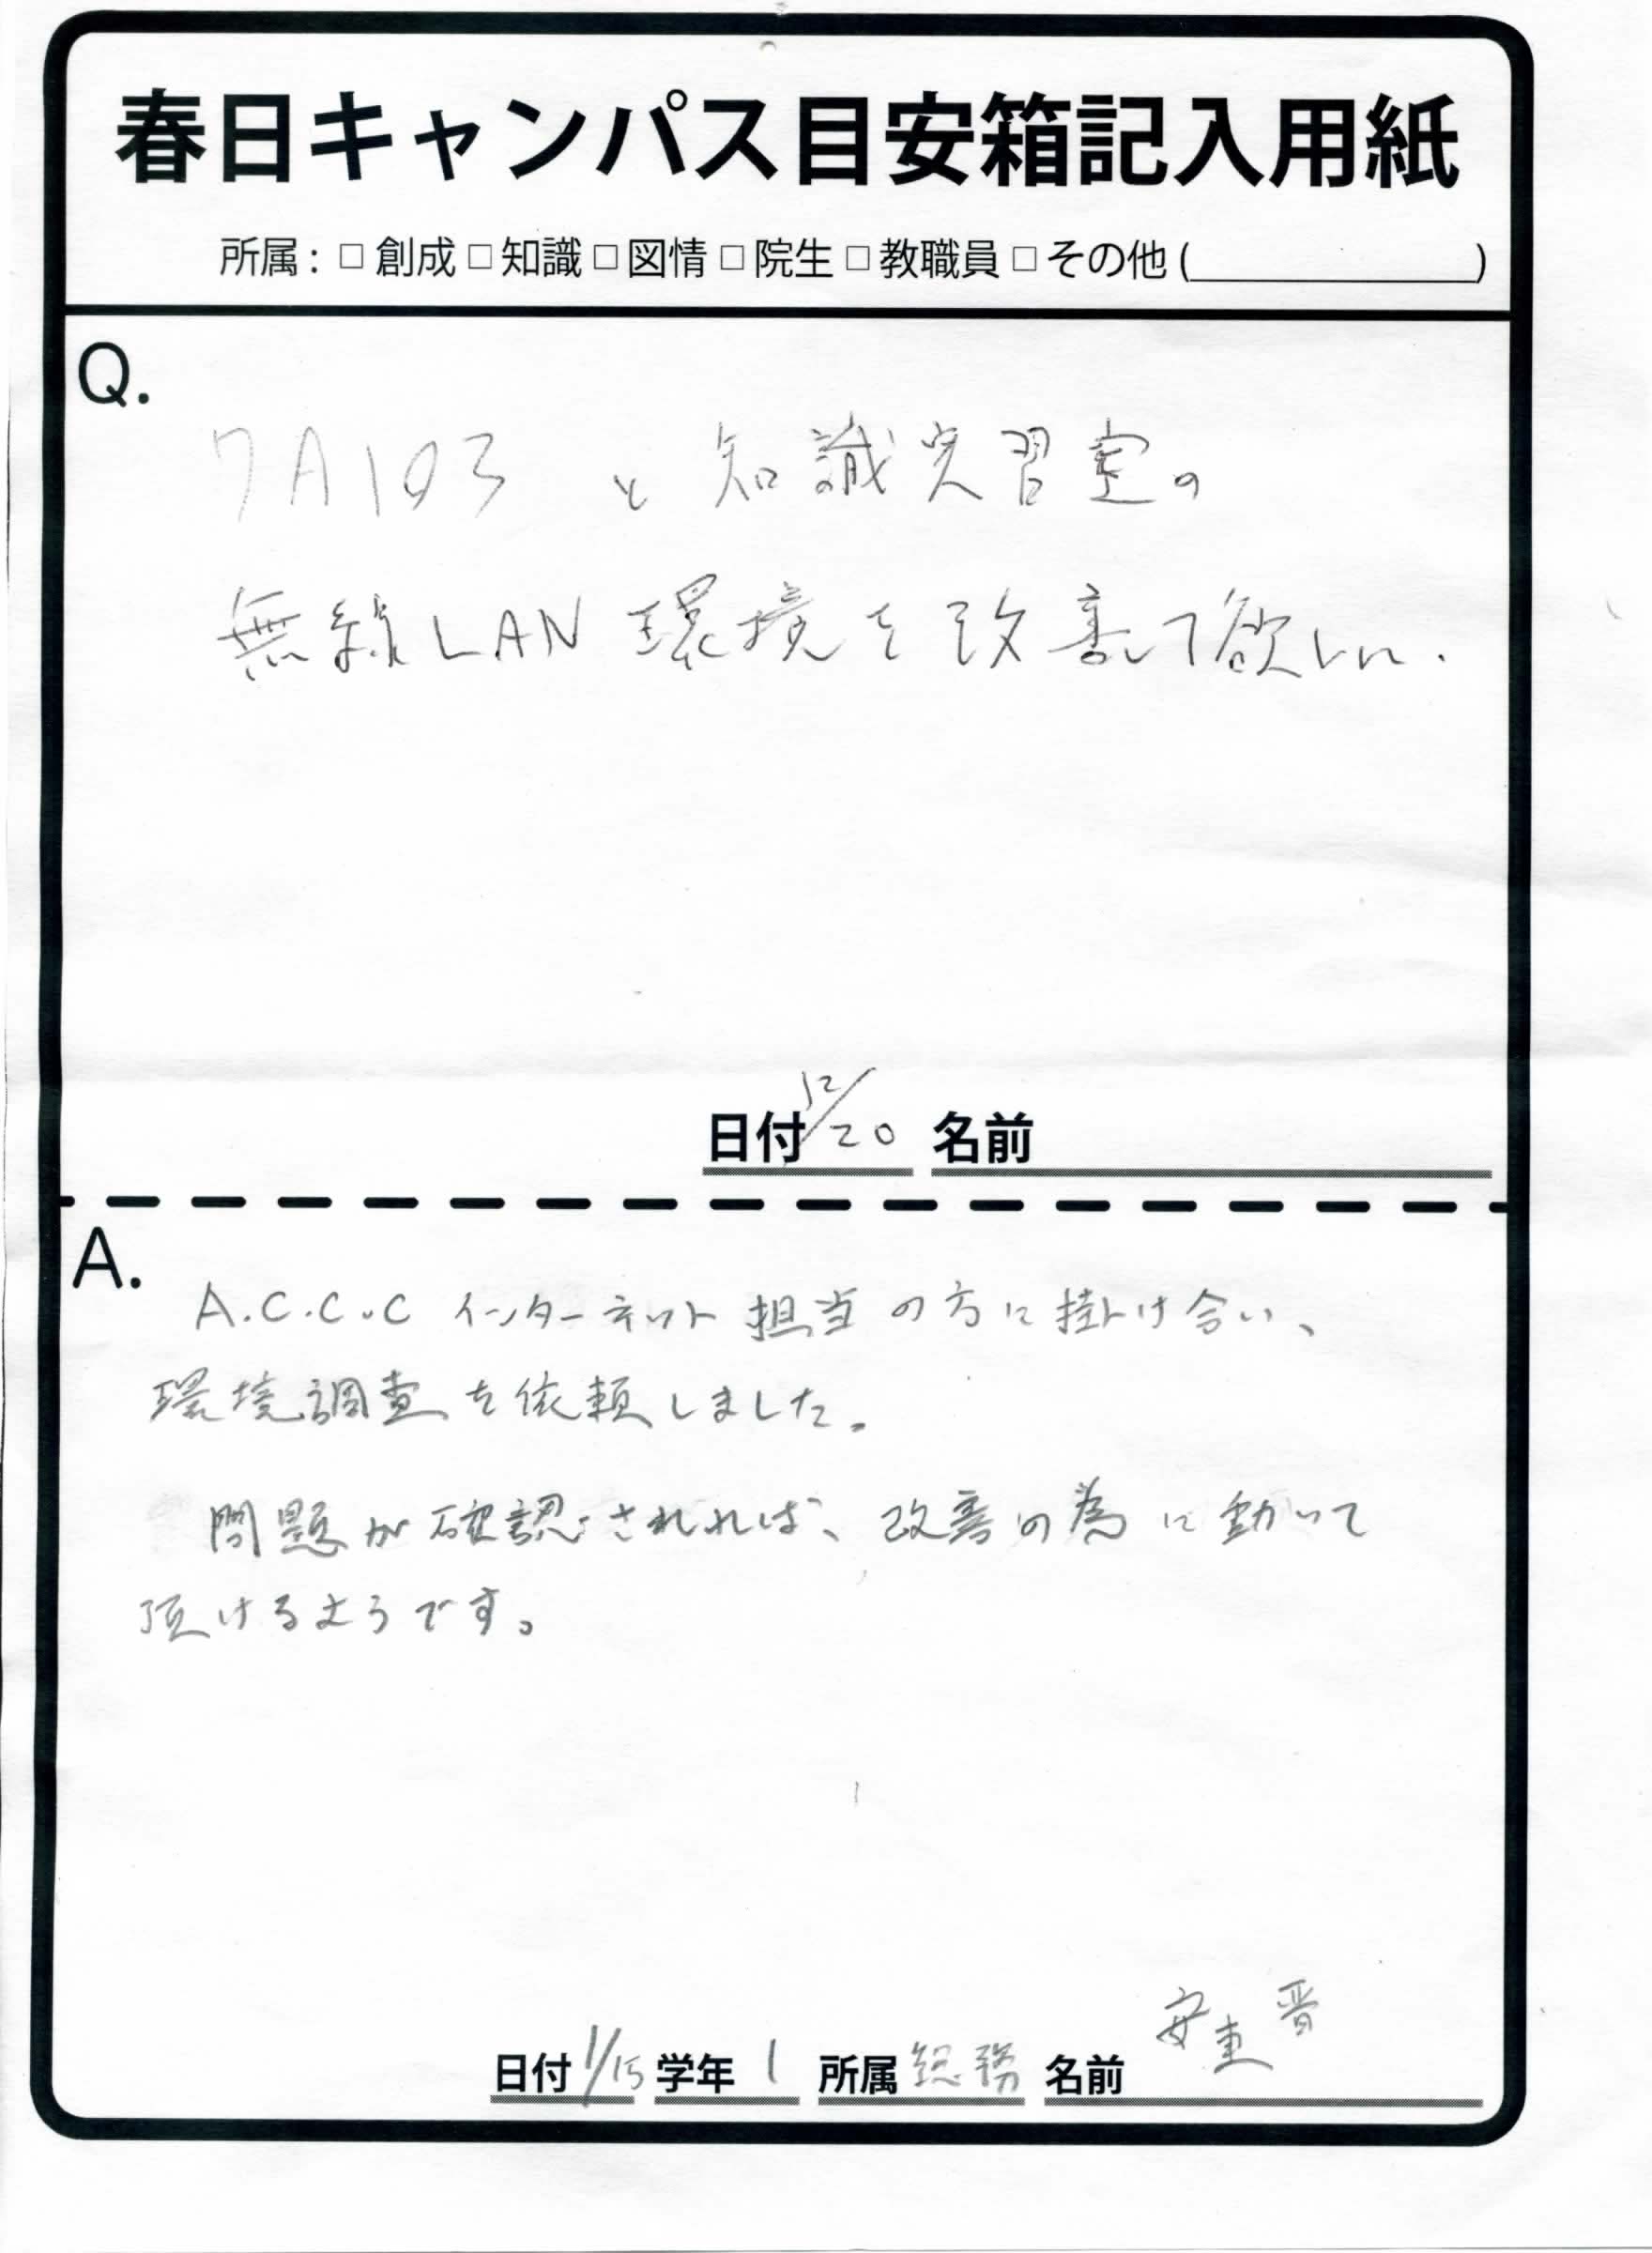 春日キャンパス目安箱記入用紙
所属：□ 創成 □ 知識 □ 図情 □ 院生 □ 教職員 □ その他 (　　　　　　)
Q.
7A103 と 知識実習室の
無線LAN 環境を改善して欲しい.
日付 12/20 名前
A.
A.C.C.C インターネット担当の方に掛け合い、
環境調査を依頼しました。
問題が確認されれば、改善の為に動いて
頂けるようです。
日付 1/15 学年 1 所属 総務 名前 安重 晋